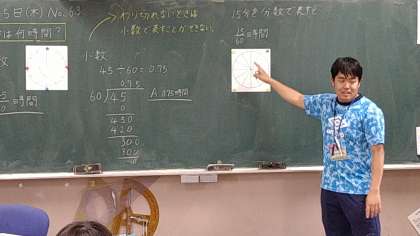 5日(木) No.63
は何時間？
わり切れないときは
小数で表すことができない。
小数
45÷60=0.75
0.75
60)45
0
450
420
300
300
A 0.75時間
時間
15分を分数で表すと
15/60時間